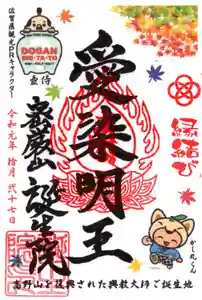 佐賀県観光PRキャラクター
DOGAN
SHI-TA-TO
壺侍
愛染明王
縁結び
令和元年 拾月 弐十七日
密厳山 誕生院
かし丸くん
高野山を復興された興教大師ご誕生地